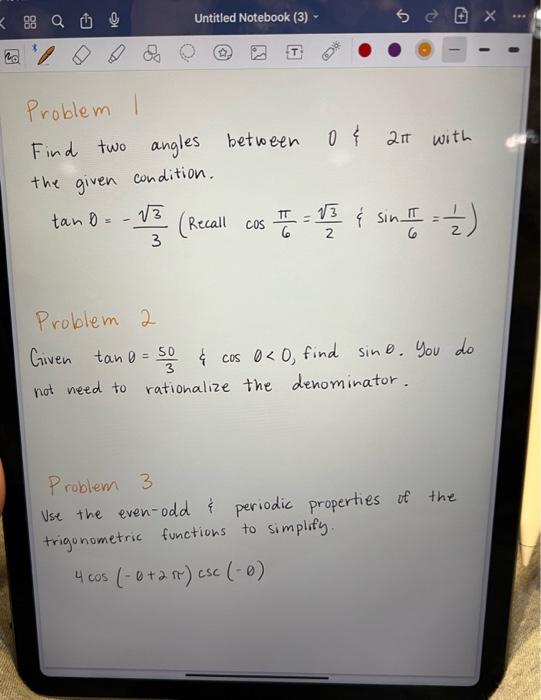 Untitled Notebook (3)
Problem 1
Find two angles between 0 & 2π with
the given condition.
tan θ = -√3/3 (Recall cos π/6 = √3/2 & sin π/6 = 1/2)
Problem 2
Given tan θ = 50/3 & cos θ < 0, find sin θ. You do
not need to rationalize the denominator.
Problem 3
Use the even-odd & periodic properties of the
trigonometric functions to simplify.
4 cos (-θ+2π) csc (-θ)